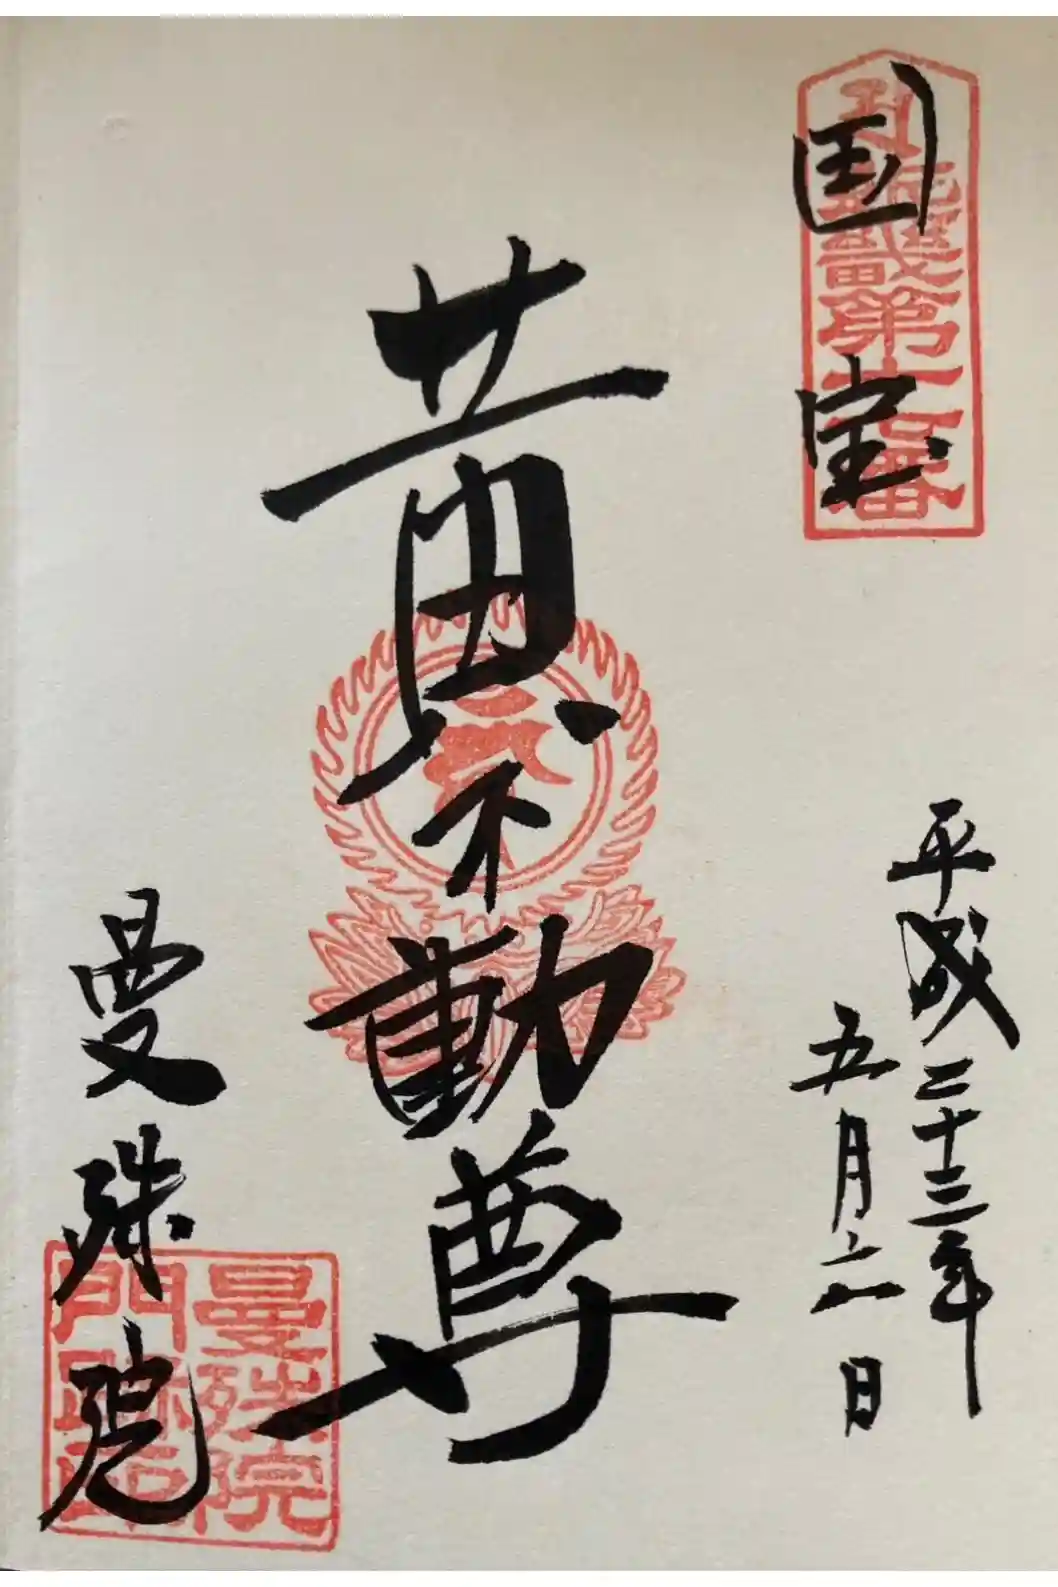 国宝
黄不動尊
平成二十三年
五月六日
曼殊院
第十七番
曼殊院
門跡印